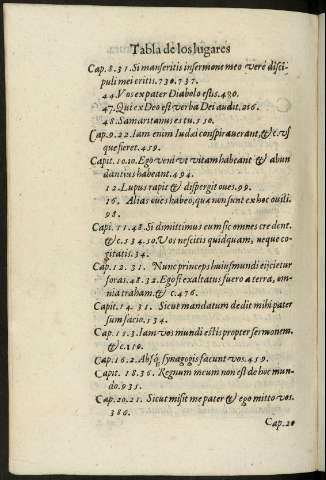 Tabla de los lugares
Cap. 8. 31. Si manseritis in sermone meo veré disci-
puli mei eritis. 730. 737.
44. Vos ex pater Diabolo estis. 430.
47. Qui ex Deo est verba Dei audit. 216.
48. Samaritanus es tu. 110.
Cap. 9. 22. Iam enim Iudæi conspirauerant, & c. vt
que fieret. 459.
Capit. 10. 10. Ego veni vt vitam habeant & abun
dantius habeant. 494.
12. Lupus rapit & dispergit oues. 99.
16. Alias oues habeo, quæ non sunt ex hoc ouili.
98.
Capi. 11. 48. Si dimittimus eum sic omnes credent.
& c. 134. 50. Vos nescitis quidquam, neque co-
gitatis. 34.
Cap. 12. 31. Nunc princeps huius mundi eijcietur
foras. 48. 32. Ego si exaltatus fuero a terra, om-
nia traham. & c. 476.
Capit. 14. 31. Sicut mandatum dedit mihi pater
sum facio. 134.
Cap. 15. 3. Iam vos mundi estis propter sermonem.
& c. 110.
Cap. 16. 2. Absq; synagogis facunt vos. 459.
Capit. 18. 36. Regnum meum non est de hoc mun-
do. 931.
Cap. 20. 21. Sicut misit me pater & ego mitto vos.
386.
Cap. 20